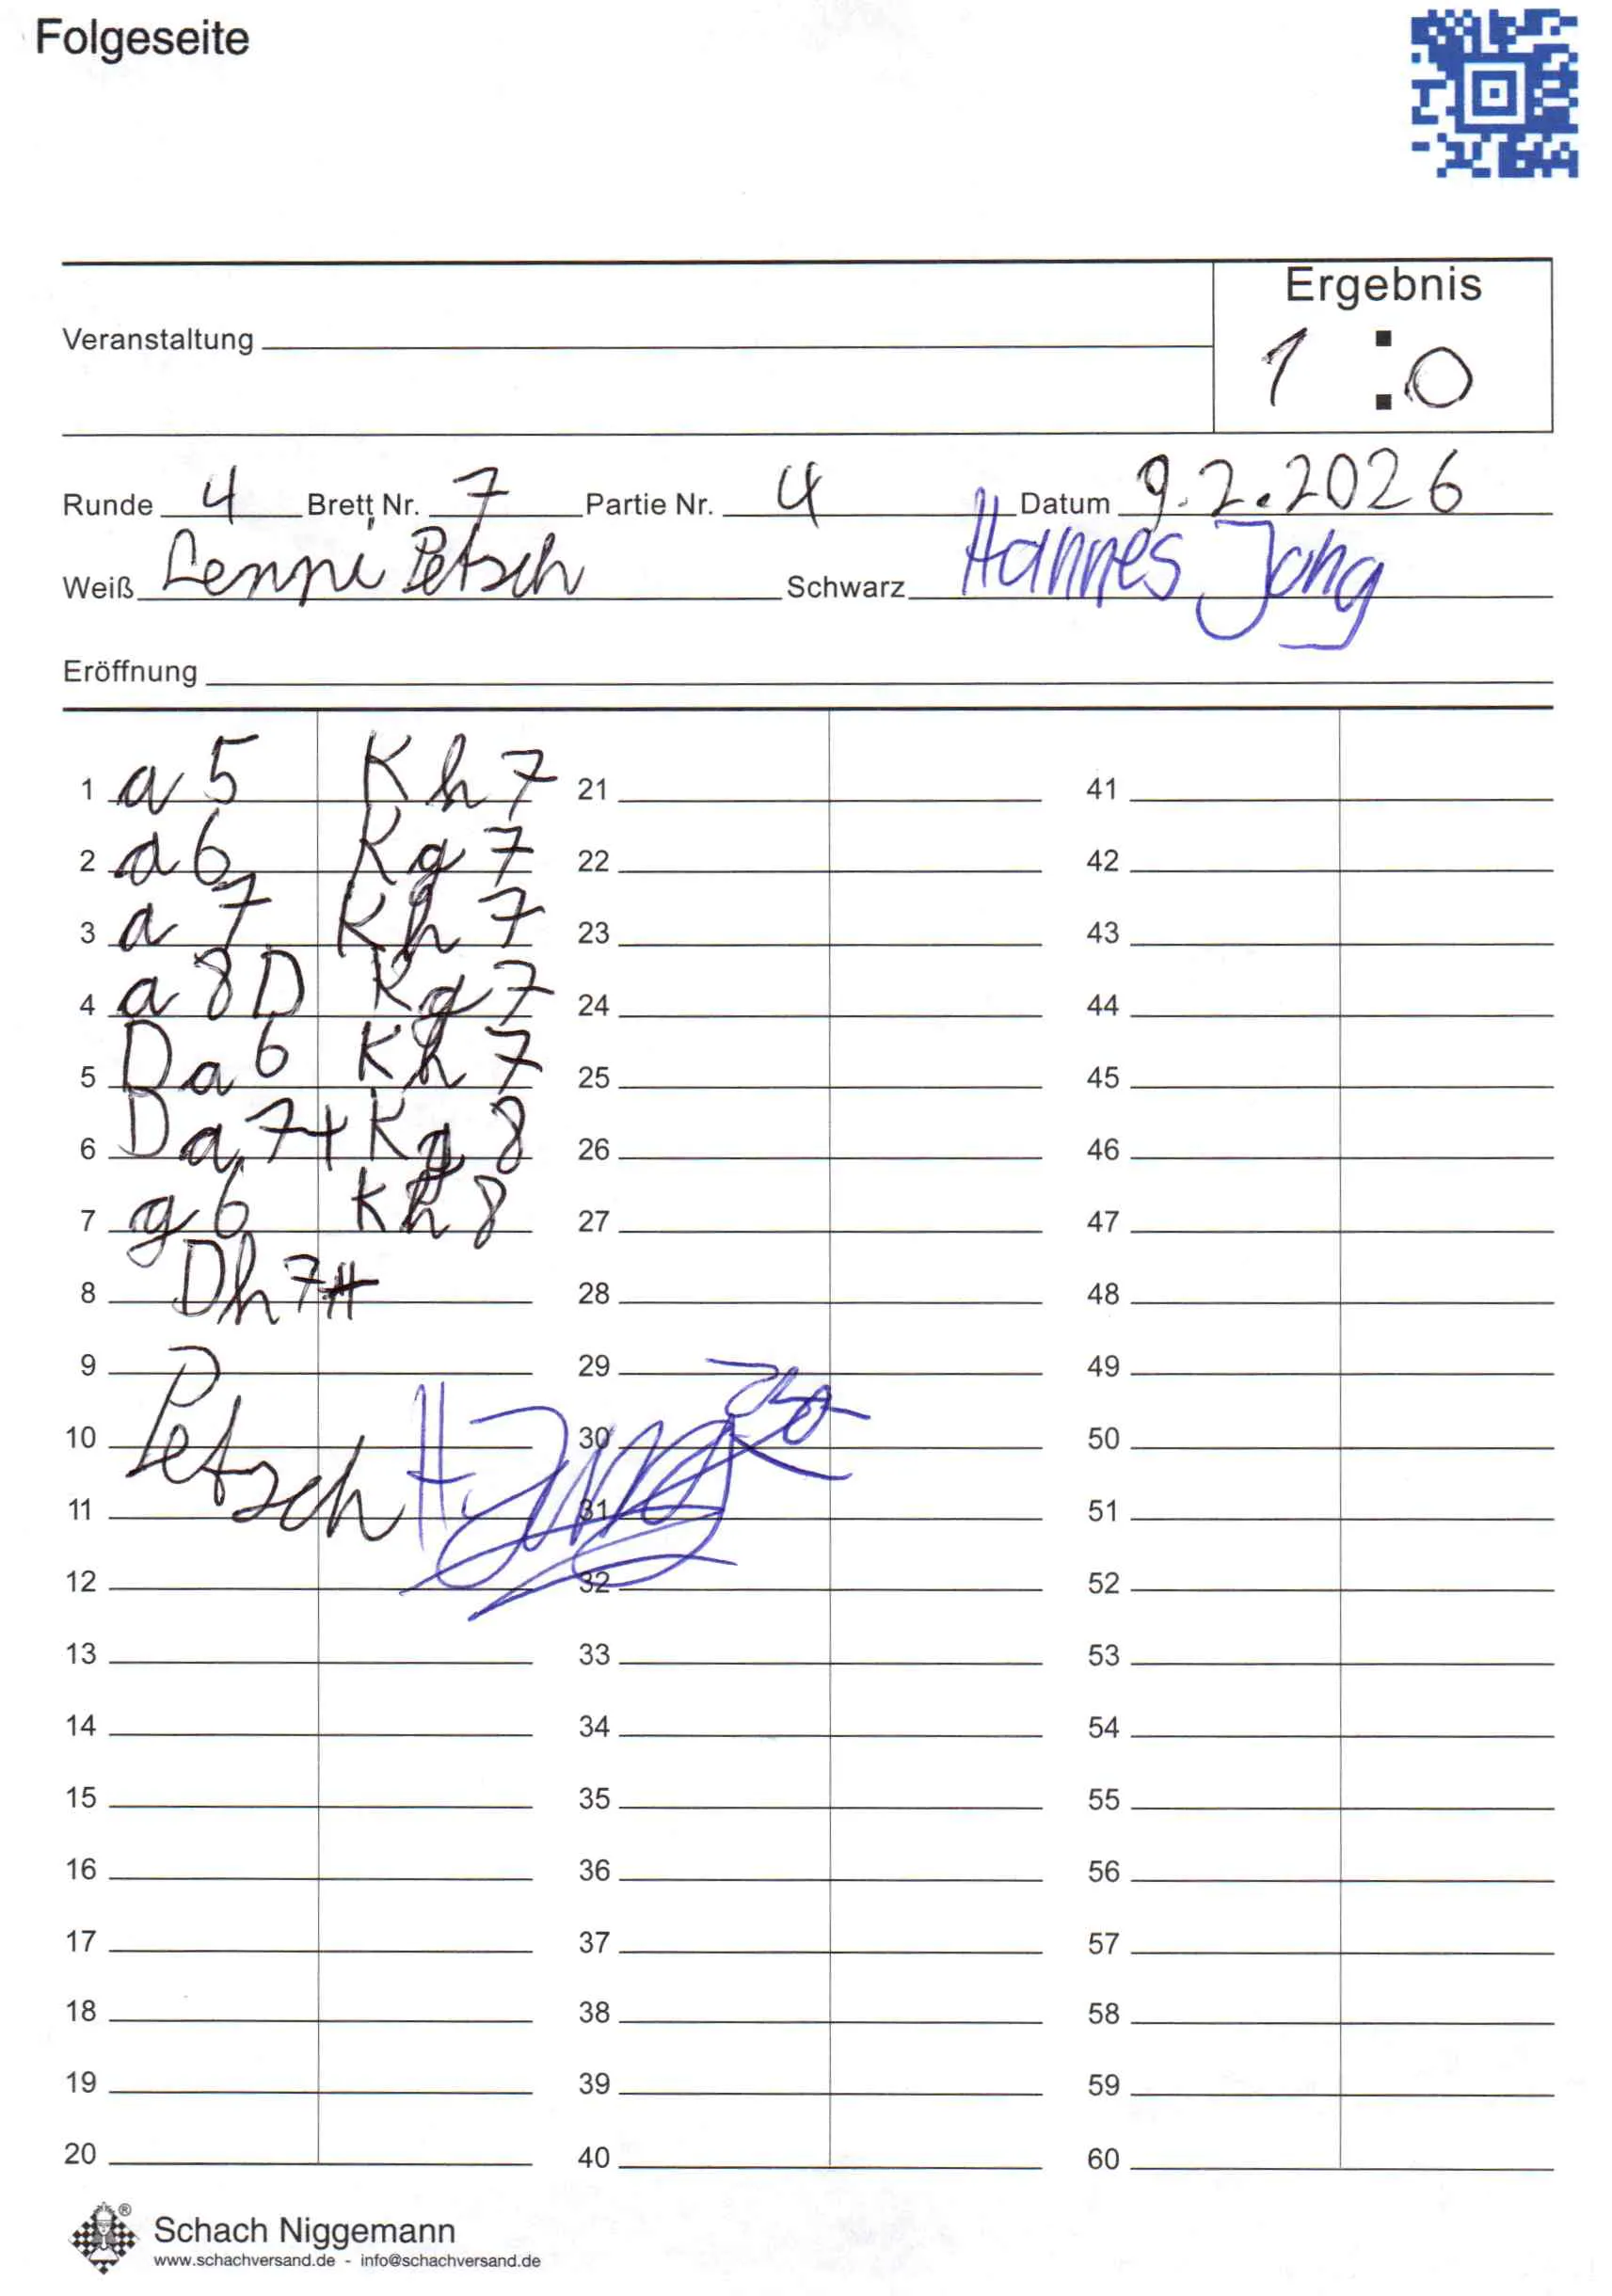 Folgeseite
Ergebnis
Veranstaltung
1 : 0
Runde 4 Brett Nr. 7 Partie Nr. 4 Datum 9.2.2026
Weiß Lenni Petsch Schwarz Hannes Jong
Eröffnung
1 a5 Kh7 21 41
2 a6 Kg7 22 42
3 a7 Kh7 23 43
4 a8D Kg7 24 44
5 Da6 Kh7 25 45
6 Da7+ Kg8 26 46
7 g6 Kh8 27 47
8 Dh7# 28 48
9 29 49
10 Petsch 30 50
11 31 51
12 32 52
13 33 53
14 34 54
15 35 55
16 36 56
17 37 57
18 38 58
19 39 59
20 40 60
Schach Niggemann ®
www.schachversand.de - info@schachversand.de